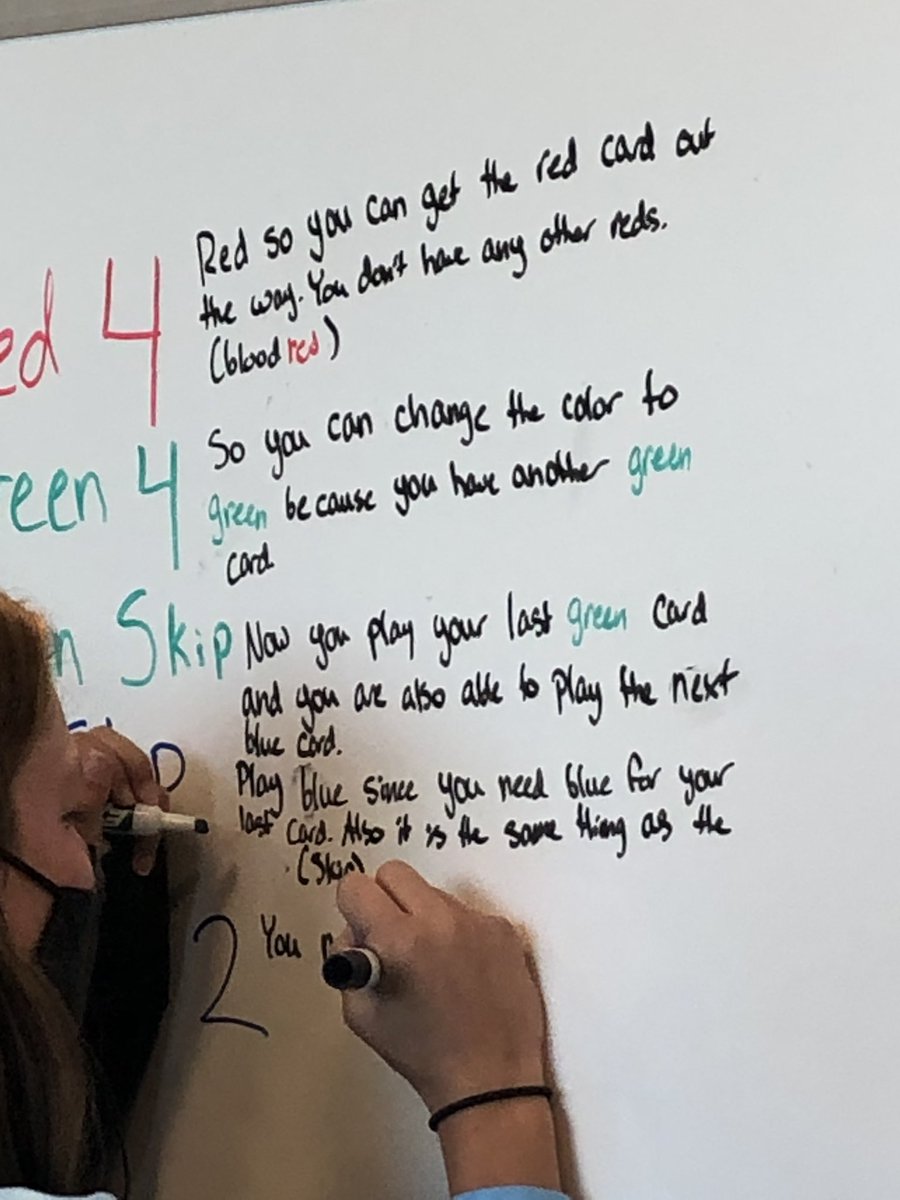 ed 4
Red so you can get the red card out
the way. You don't have any other reds.
(blood red)
reen 4
So you can change the color to
green because you have another green
card.
n Skip
Now you play your last green card
and you are also able to play the next
blue card.
Play blue since you need blue for your
last card. Also it is the same thing as the
(Skip)
2
You